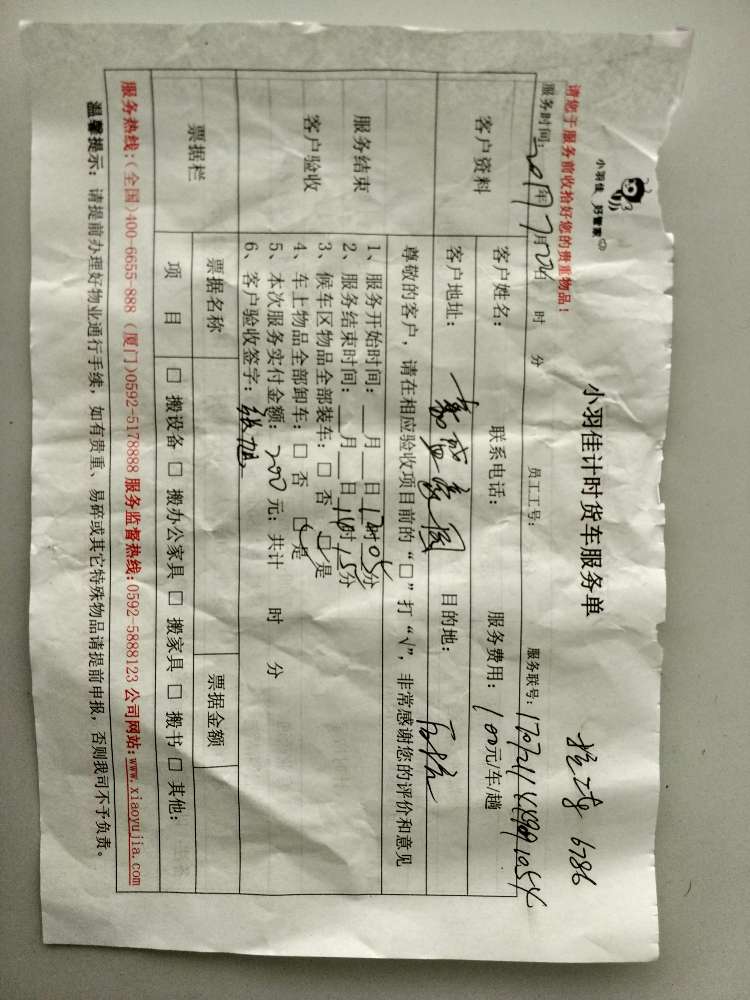 小羽佳 好管家
小羽佳计时货车服务单
6786
请您于服务前收拾好您的贵重物品！
服务时间：2017年7月22日 时 分 员工工号： 服务联号：
客户资料 客户姓名： 联系电话： 服务费用：100元/车/趟
客户地址： 嘉盛豪园 目的地：
服务结束
客户验收
尊敬的客户，请在相应验收项目前的“□”打“√”，非常感谢您的评价和意见
1、服务开始时间：__月__日 时05分
2、服务结束时间：__月__日 时15分
3、候车区物品全部装车：□ 否 □ 是
4、车上物品全部卸车：□ 否 □ 是
5、本次服务实付金额：200 元；共计 时 分
6、客户验收签字：张旭
票据栏 票据名称 票据金额
项 目 □ 搬设备 □ 搬办公家具 □ 搬家具 □ 搬书 □ 其他：
服务热线：(全国)400-6655-888 (厦门)0592-5178888 服务监督热线：0592-5888123 公司网站：www.xiaoyujia.com
温馨提示：请提前办理好物业通行手续，如有贵重、易碎或其它特殊物品请提前申报，否则我司不予负责。